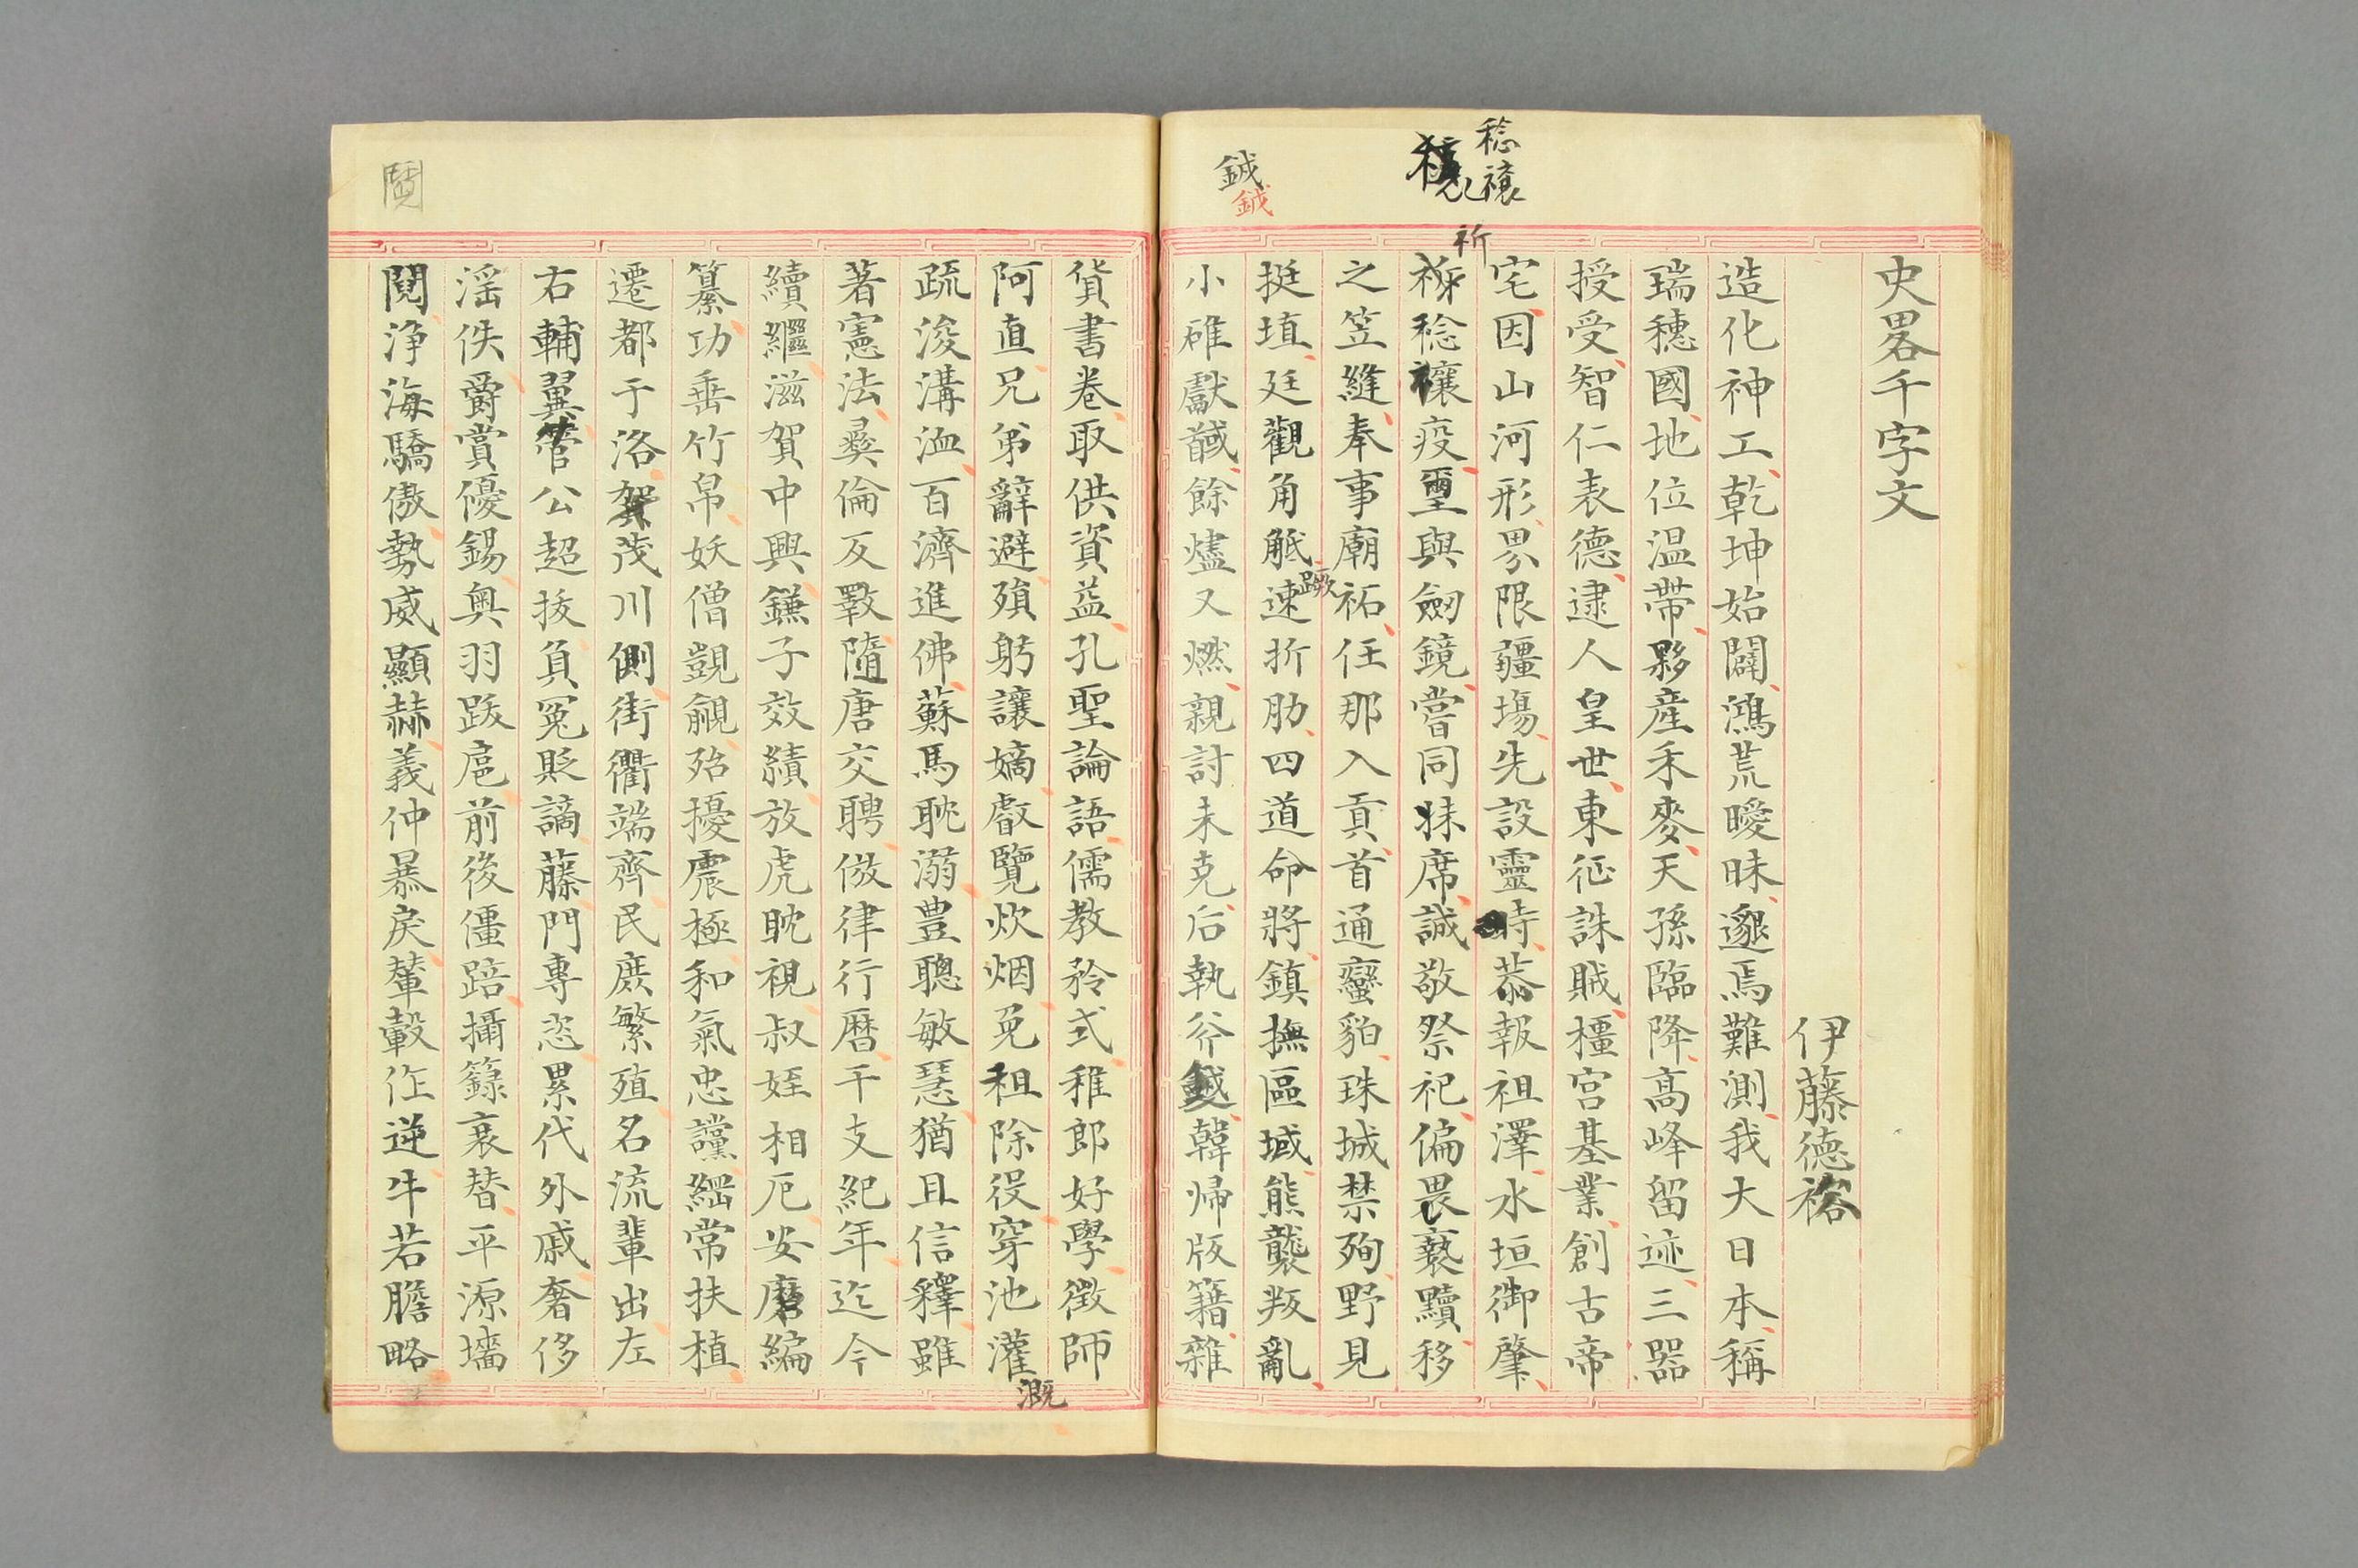 史畧千字文
伊藤德裕
造化神工乾坤始闢鴻荒曖昧邈焉難測我大日本稱
瑞穗國地位温帶夥産禾麥天孫臨降高峰留迹三器
授受智仁表德逮人皇世東征誅賊橿宮基業創古帝
宅因山河形界限疆場先設靈畤恭報祖澤水垣御肇
稔禳疫璽與劔鏡嘗同牀席誠敬祭祀偏畏褻黷移
祈
稔
禳
之笠縫奉事廟祏任那入貢首通蠻貊珠城禁殉野見
挺埴廷觀角觝速折肋四道命將鎮撫區域熊襲叛亂
蹶
小碓獻馘餘燼又燃親討未克后執斧鉞韓帰版籍雜
鉞
鉞
貨書卷取供資益孔聖論語儒教矜式稚郎好學徴師
阿直兄弟辭避殞躬讓嫡叡覽炊烟免租除役穿池灌
溉
疏浚溝洫百濟進佛蘇馬耽溺豊聰敏慧猶且信釋雖
著憲法彜倫攸斁隋唐交聘倣律行暦干支紀年迄今
續繼滋賀中興鎌子效績放虎眈視叔姪相厄安磨編
纂功垂竹帛妖僧覬覦殆擾震極和氣忠讜綱常扶植
遷都于洛賀茂川側街衢端齊民庶繁殖名流輩出左
右輔翼菅公超拔負冤貶謫藤門專恣累代外戚奢侈
淫佚爵賞優錫奥羽跋扈前後僵踣攝籙衰替平源墻
鬩浄海驕傲勢威顯赫義仲暴戻輦轂作逆牛若膽略
鬩